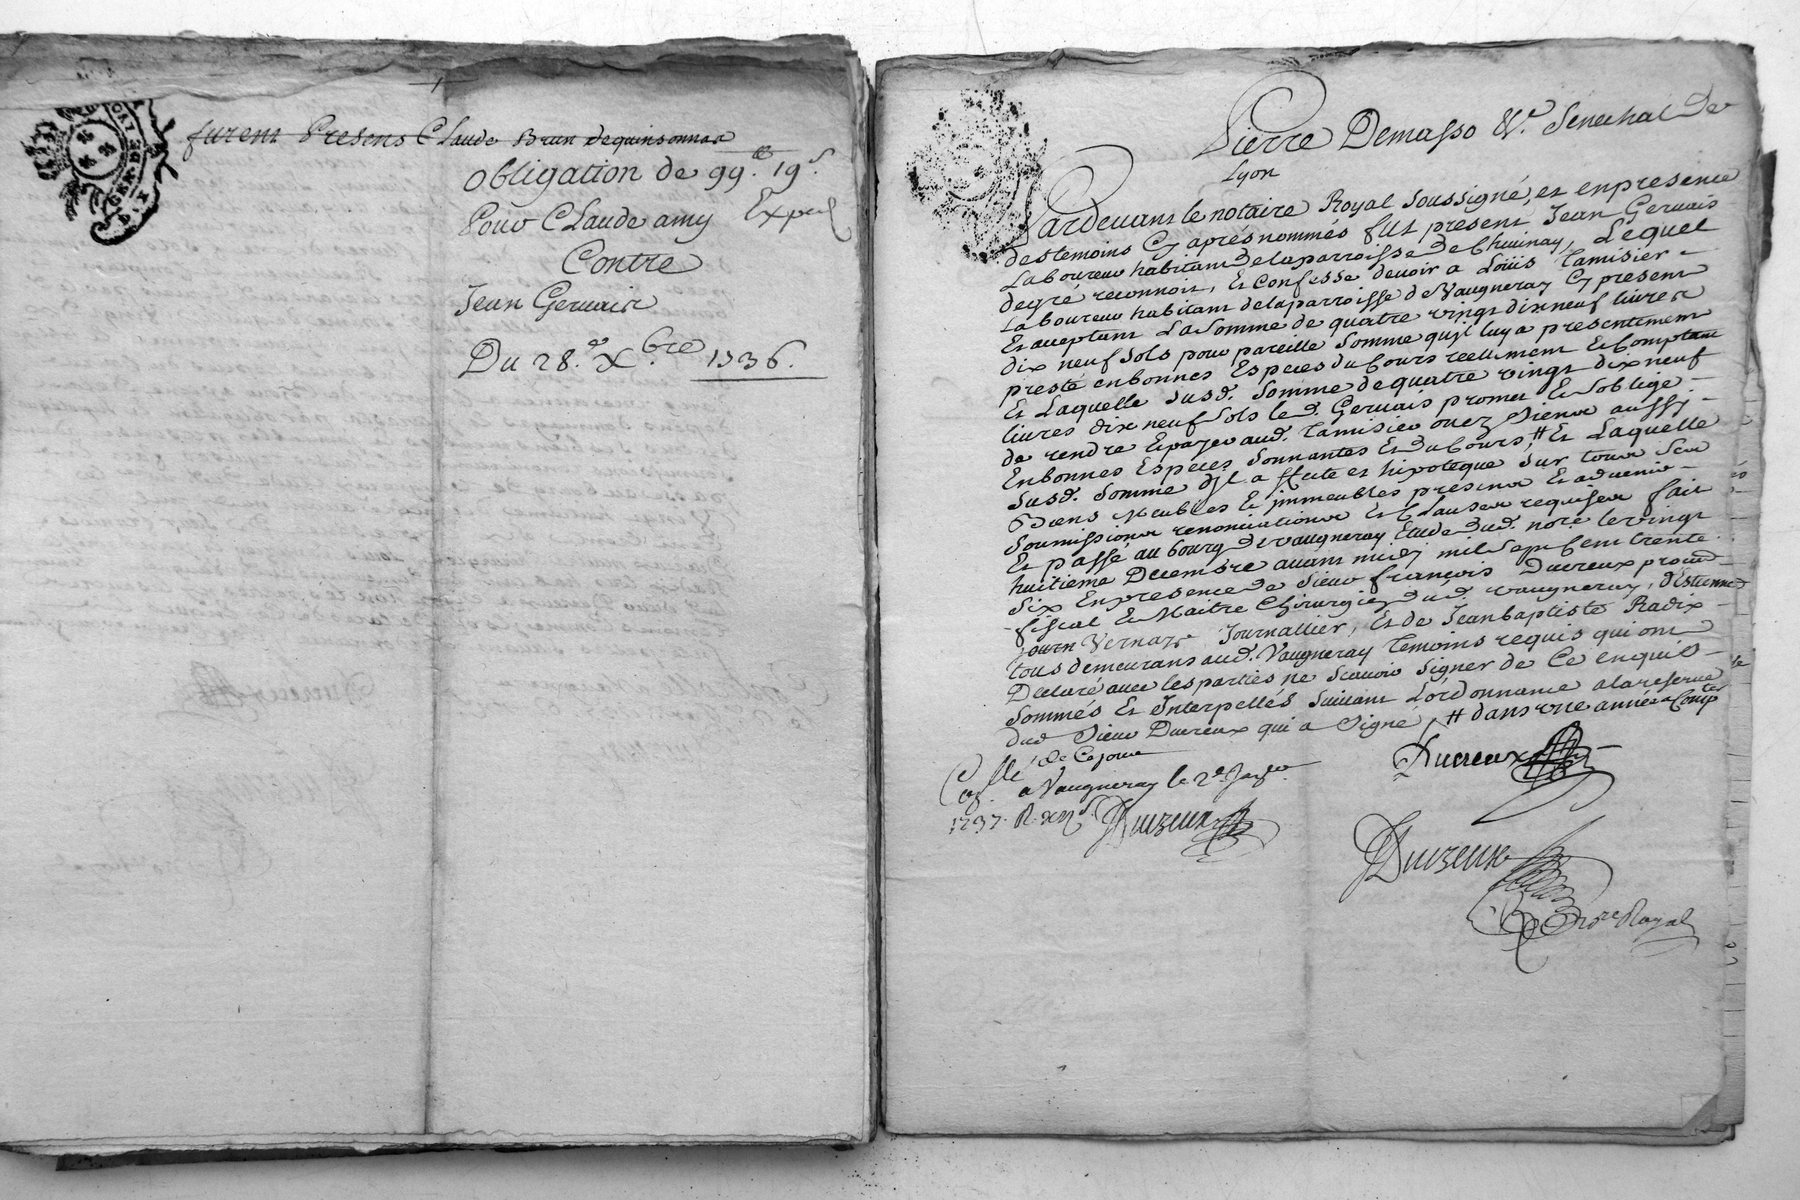 furent Presens Claude Brun dequinsonnas
obligation de 99.lt 19.s
Pour Claude amy Exped
Contre
Jean Gervais
Du 28.e Xbre 1736.
Pierre Demasso &c.a Senechal De
Lyon
Pardevant le notaire Royal soussigné, et en presence
des temoins Cy aprés nommés fut present Jean Gervais
Laboureur habitant de la parroisse de Chevinay, Lequel
de gré reconnoit, Et Confesse devoir a Loüis Tamisier
Laboureur habitant de la parroisse de Vaugneray Cy present
Et acceptant La Somme de quatre vingt dix neuf livres
dix neuf sols pour pareille Somme qu'jl luy a presentement
presté en bonnes Especes du Cours réellement Et Comptant
Et Laquelle susd. Somme de quatre vingt dix neuf
livres dix neuf sols led. Gervais promet Et s'oblige
de rendre Et payer aud. Tamisier ou ez siens aussy
En bonnes Especes sonnantes Et du Cours, # Et Laquelle
susd. Somme jl affecte et hipoteque sur tous ses
Biens Meubles Et jmmeubles presens Et advenir
Soumissions renonciations Et Clauses requises fait
Et passé au bourg de Vaugneray Etude dud. note le vingt
huitieme Decembre avant midy mil sept Cent trente
six En presence de sieur françois Ducreux procur
fiscal Et Maitre Chirurgien dud. Vaugneray, d'Estienne
Vernay Journallier, Et de Jean baptiste Radix
tous demeurans aud. Vaugneray temoins requis qui ont
Declaré avec les parties ne scavoir signer de Ce enquis
sommés Et Interpellés suivant L'ordonnance a la reserve
dud sieur Ducreux qui a signé, # dans une année a Compter
de Ce jour
Ducreux
Collé a Vaugneray le 2.e Janvier
1737. R. xij s. Duizeux
Duizeux
Nore Royal